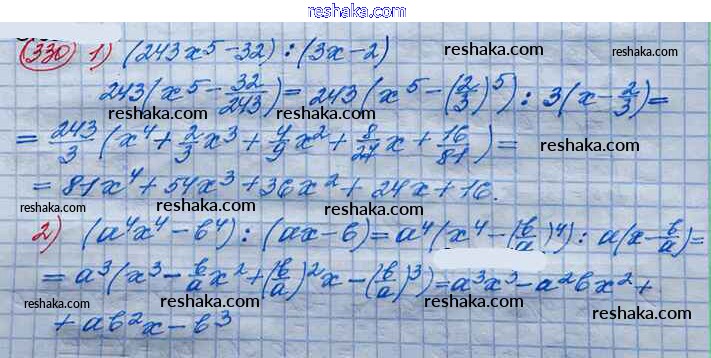 reshaka.com
(330) 1) (243x⁵-32) : (3x-2)
reshaka.com
243(x⁵ - 32/243) = 243(x⁵ - (2/3)⁵) : 3(x - 2/3) =
reshaka.com reshaka.com
= 243/3 (x⁴ + 2/3 x³ + 4/9 x² + 8/27 x + 16/81) =
reshaka.com
= 81x⁴ + 54x³ + 36x² + 24x + 16.
reshaka.com reshaka.com
2) (a⁴x⁴ - b⁴) : (ax - b) = a⁴(x⁴ - (b/a)⁴) : a(x - b/a) =
= a³(x³ - b/a x² + (b/a)² x - (b/a)³) = a³x³ - a²bx² +
reshaka.com reshaka.com reshaka.com
+ ab²x - b³
reshaka.com